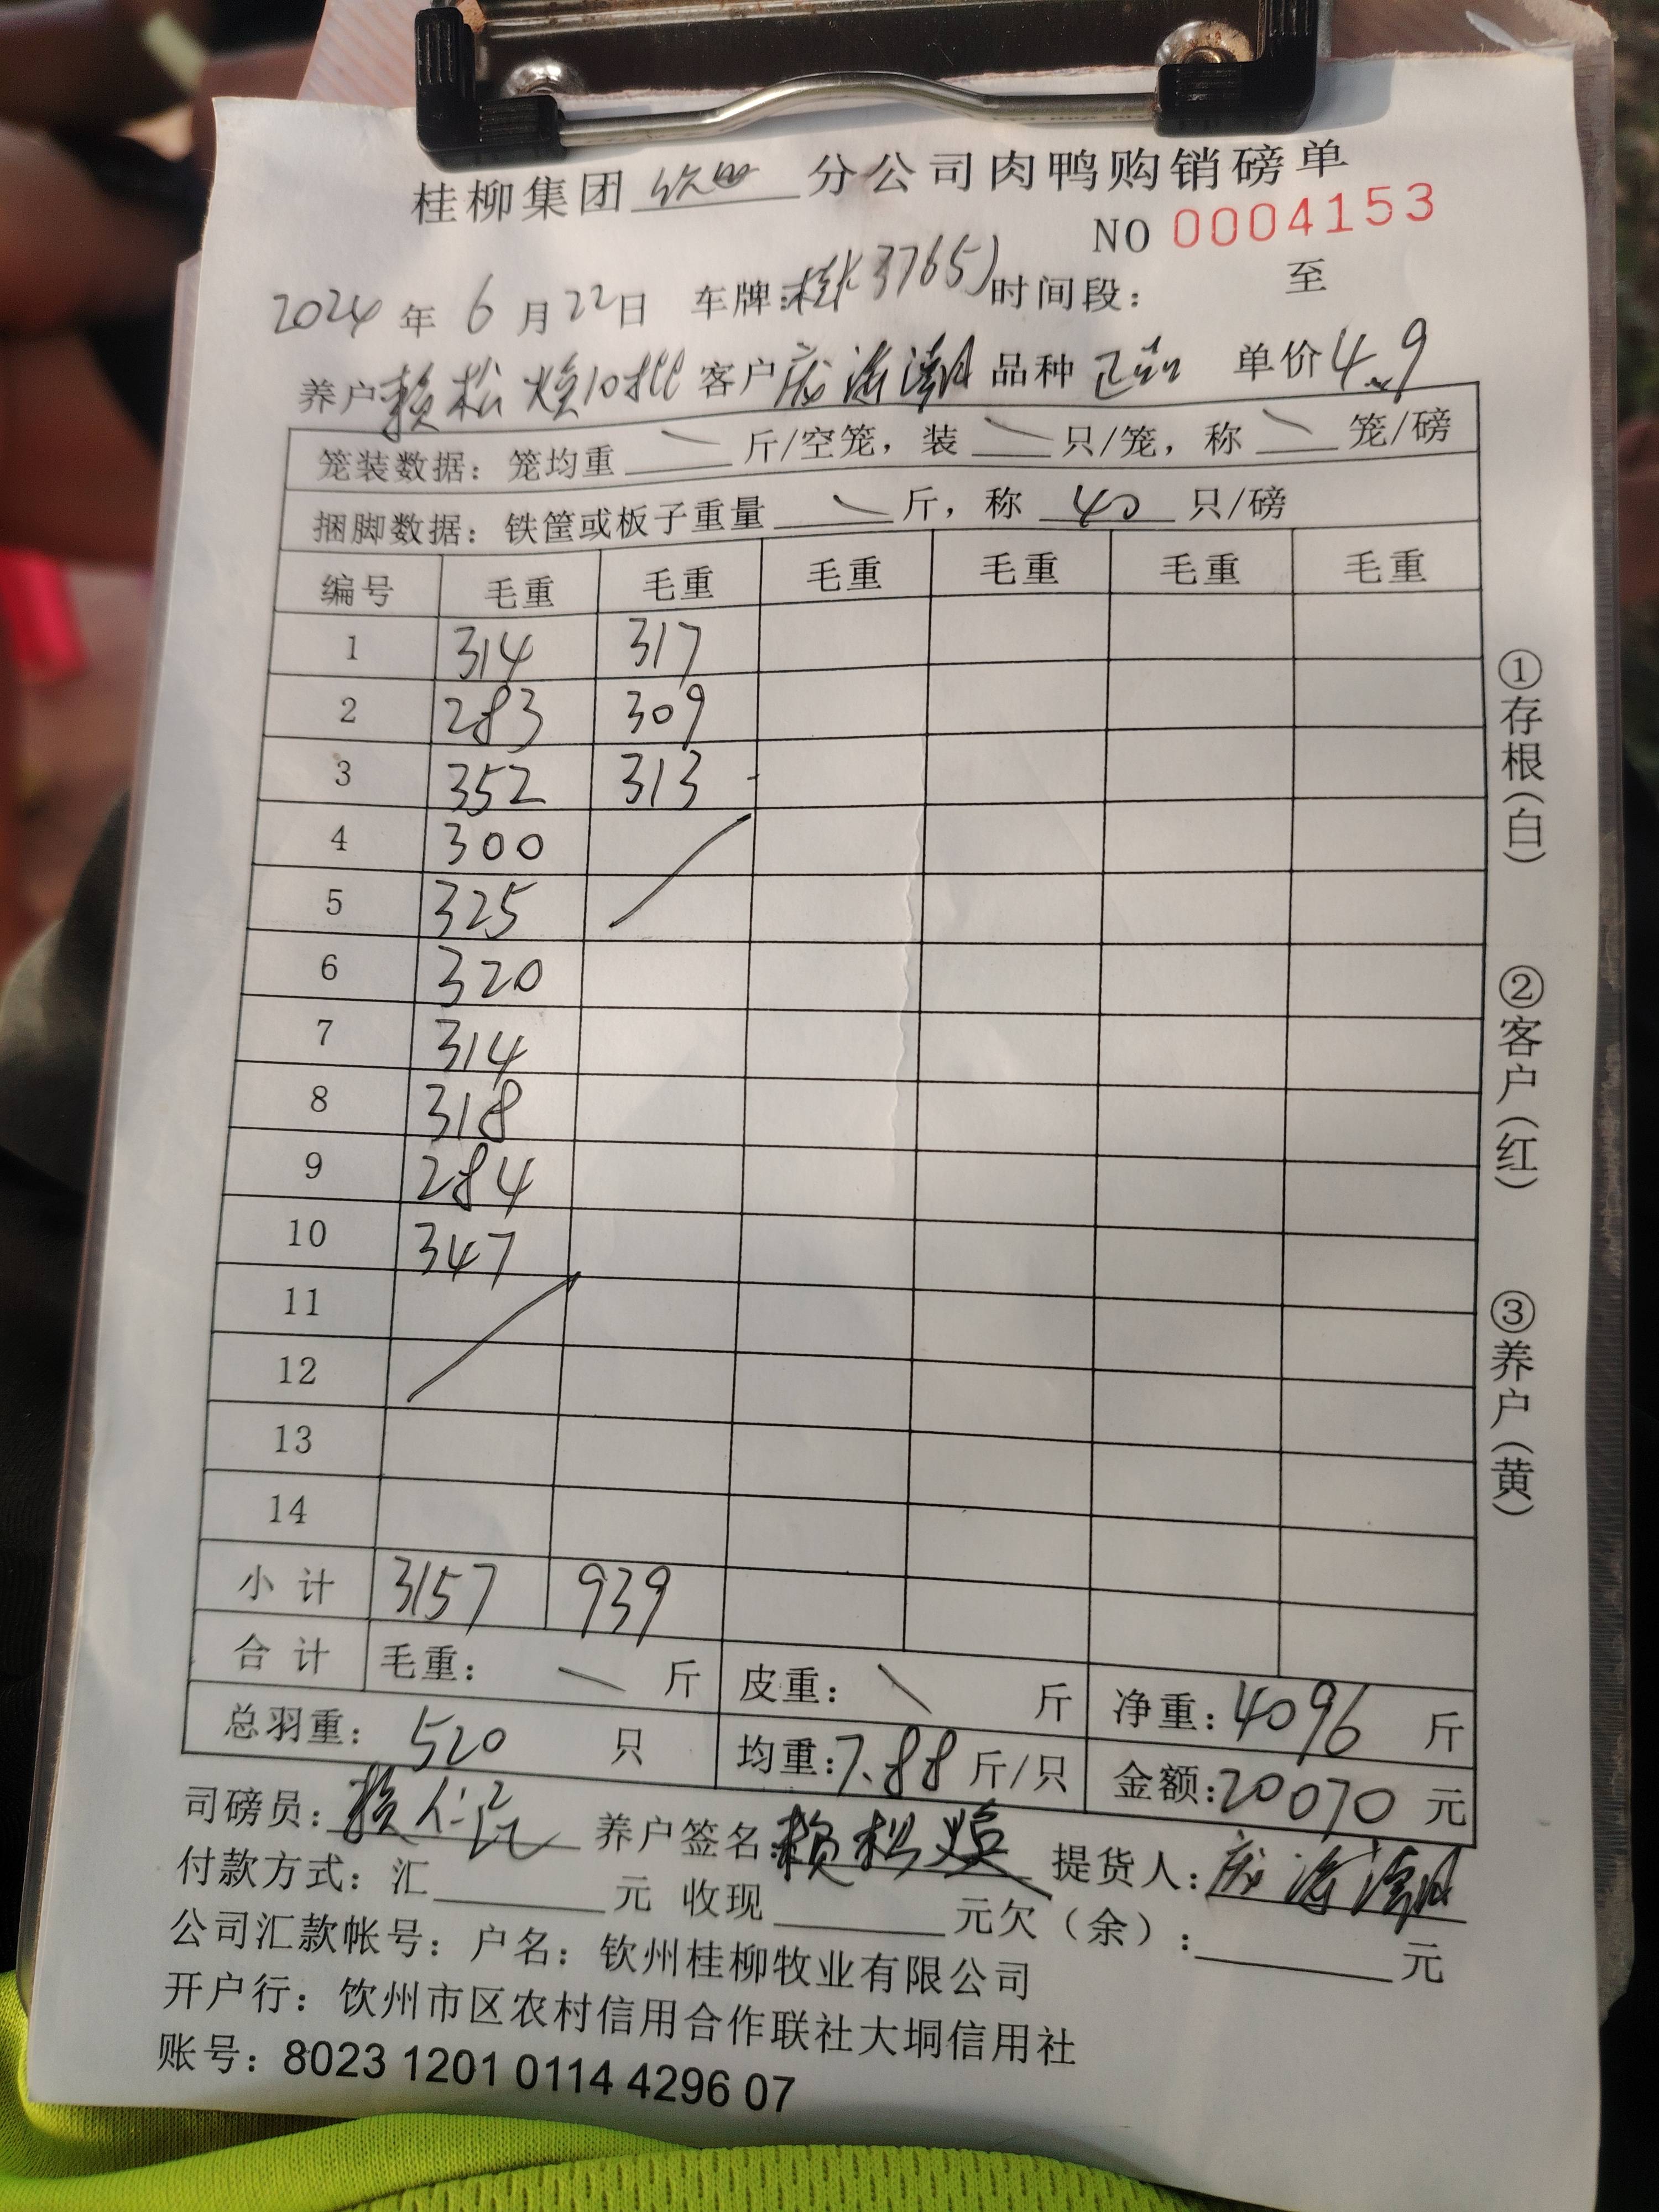 桂柳集团 钦四 分公司肉鸭购销磅单
NO 0004153
2024 年 6 月 22 日 车牌: 桂K37651 时间段: 至
养户 赖松焕10批 客户 庞海潮 品种 正品 单价 4.9
笼装数据: 笼均重 \ 斤/空笼, 装 \ 只/笼, 称 \ 笼/磅
捆脚数据: 铁筐或板子重量 \ 斤, 称 40 只/磅
编号 毛重 毛重 毛重 毛重 毛重 毛重
1 314 317
2 283 309
3 352 313
4 300
5 325
6 320
7 314
8 318
9 284
10 347
11
12
13
14
小计 3157 939
合计 毛重: \ 斤 皮重: \ 斤 净重: 4096 斤
总羽重: 520 只 均重: 7.88 斤/只 金额: 20070 元
司磅员: 养户签名: 赖松焕 提货人: 庞海潮
付款方式: 汇 元 收现 元欠(余): 元
公司汇款帐号: 户名: 钦州桂柳牧业有限公司
开户行: 饮州市区农村信用合作联社大垌信用社
账号: 8023 1201 0114 4296 07
①存根(白)
②客户(红)
③养户(黄)